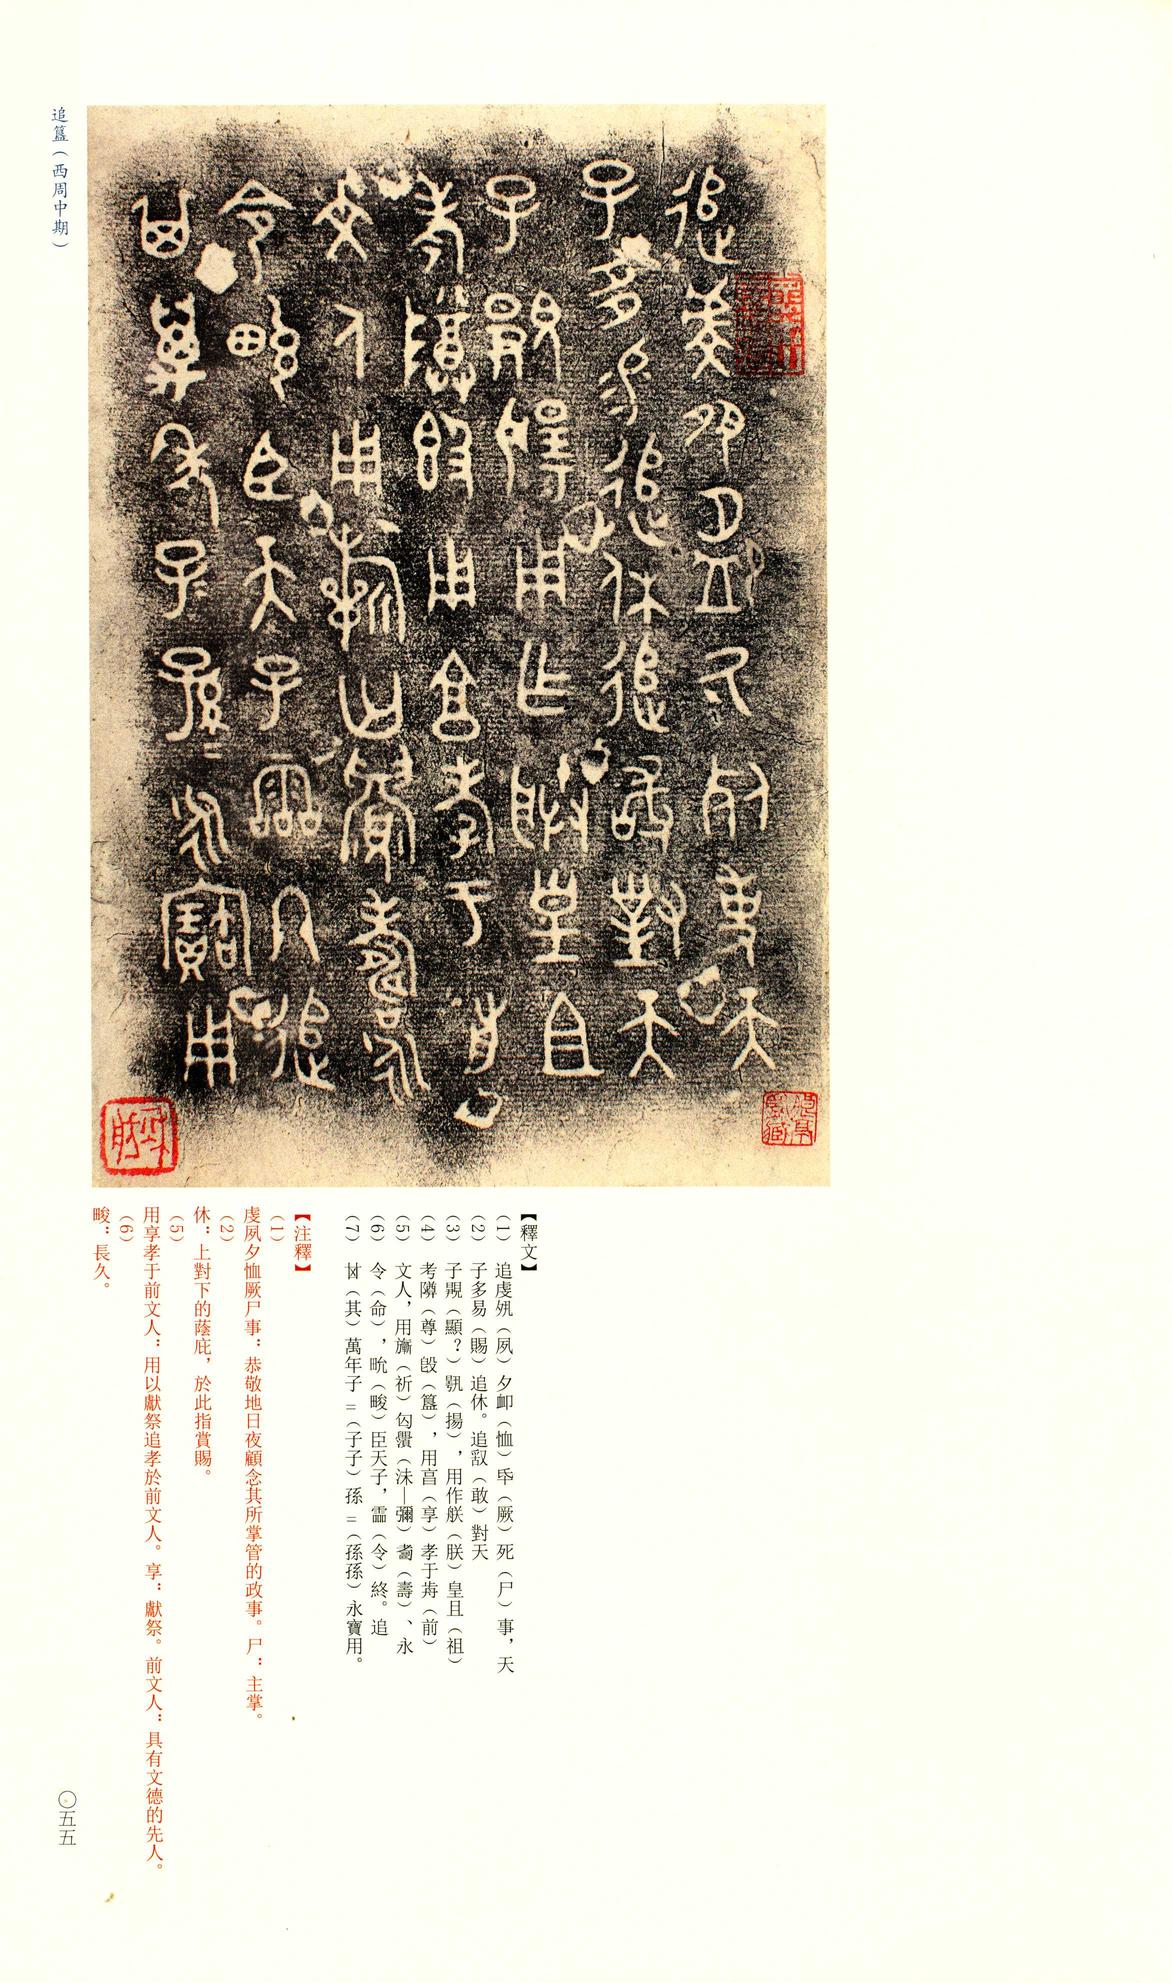 追簋（西周中期）
【釋文】
（1）追虔夙（夙）夕卹（恤）氒（厥）死（尸）事，天
（2）子多易（賜）追休。追敢（敢）對天
（3）子覭（顯？）覨（揚），用作朕（朕）皇且（祖）
（4）考隣（尊）𣪘（簋），用亯（享）孝于歬（前）
（5）文人，用旂（祈）匄（沬—彌）（壽）、永
（6）令（命），畯（畯）臣天子，霝（令）終。追
（7）𠀠（其）萬年子＝（子子）孫＝（孫孫）永寶用。
【注釋】
（1）
虔夙夕恤厥尸事：恭敬地日夜顧念其所掌管的政事。尸：主掌。
（2）
休：上對下的蔭庇，於此指賞賜。
（5）
用享孝于前文人：用以獻祭追孝於前文人。享：獻祭。前文人：具有文德的先人。
（6）
畯：長久。
〇五五